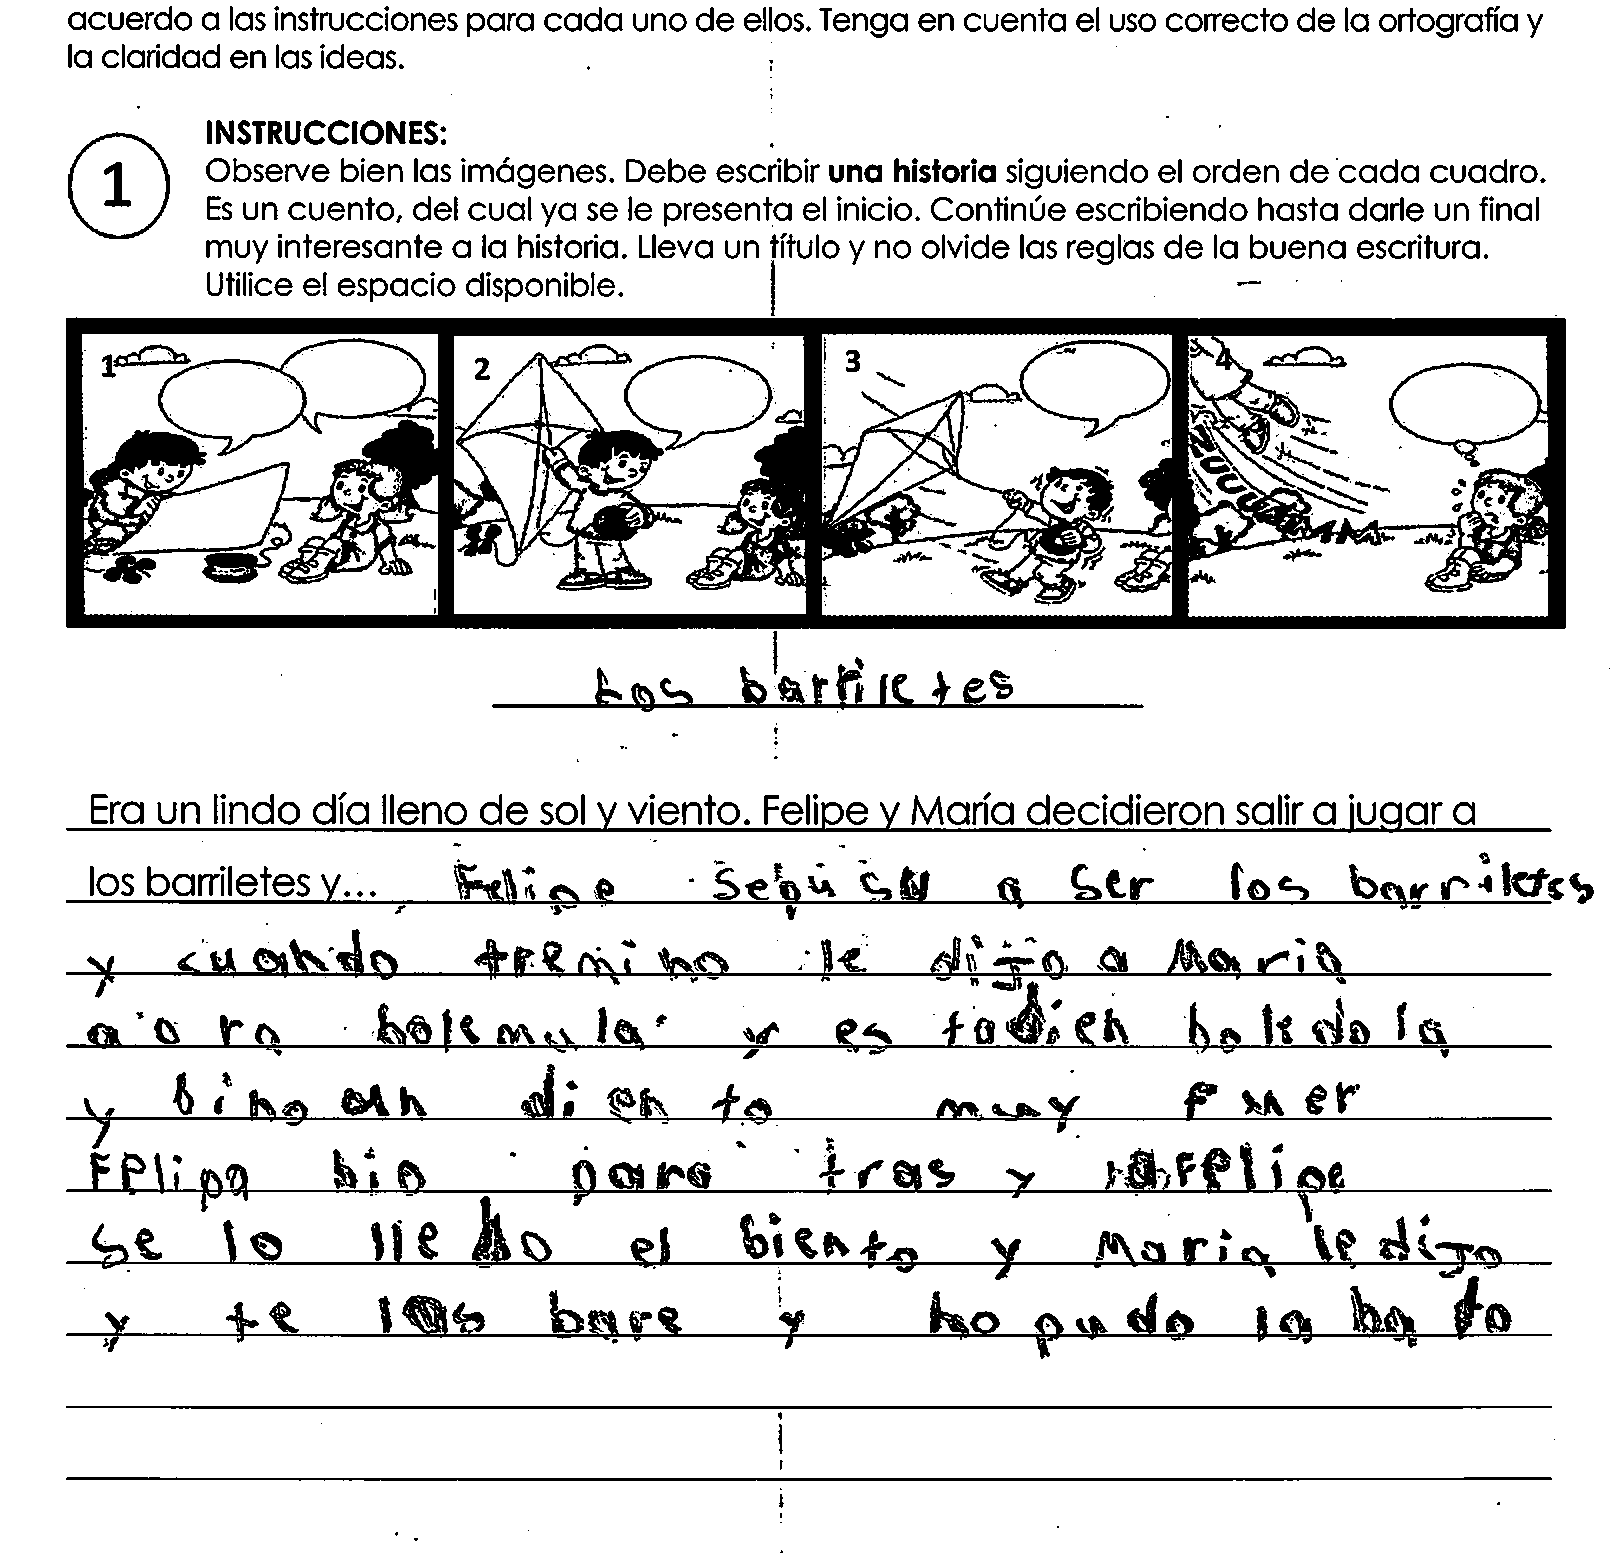 acuerdo a las instrucciones para cada uno de ellos. Tenga en cuenta el uso correcto de la ortografía y
la claridad en las ideas.
1
INSTRUCCIONES:
Observe bien las imágenes. Debe escribir una historia siguiendo el orden de cada cuadro.
Es un cuento, del cual ya se le presenta el inicio. Continúe escribiendo hasta darle un final
muy interesante a la historia. Lleva un título y no olvide las reglas de la buena escritura.
Utilice el espacio disponible.
1 2 3 4
Los barriletes
Era un lindo día lleno de sol y viento. Felipe y María decidieron salir a jugar a
los barriletes y... Felipe a ser los barriletes
y cuando tremino le dijo a Maria
a o ra y es boledola
y bino diento muy fuer
Felipa bio para tras y Felipe
se lo llebo el biento y Maria le dijo
y te bare y no pudo